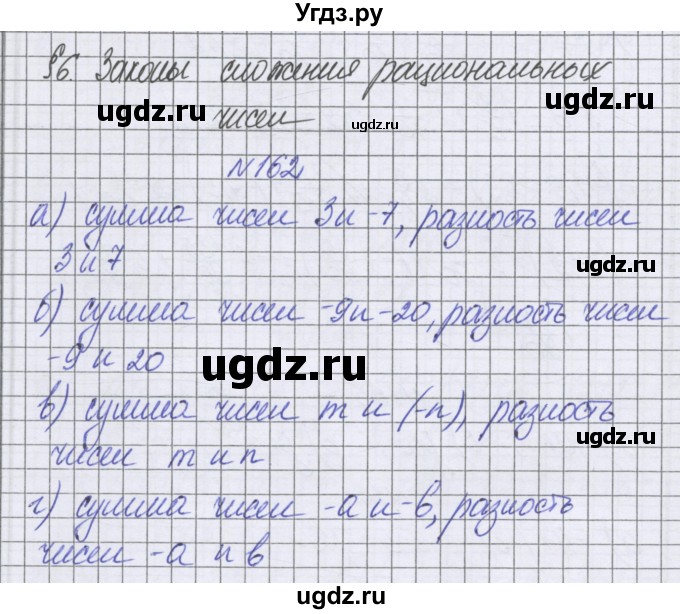 Угдз.ру
§6. Законы сложения рациональных
ugdz.ru
чисел
ugdz.ru
N162
а) сумма чисел 3 и -7, разность чисел
3 и 7
ugdz.ru
б) сумма чисел -9 и -20, разность чисел
-9 и 20
ugdz.ru
в) сумма чисел m и (-n), разность
ugdz.ru
чисел m и n
г) сумма чисел -a и -b, разность
чисел -a и b
ugdz.ru
ugdz.ru